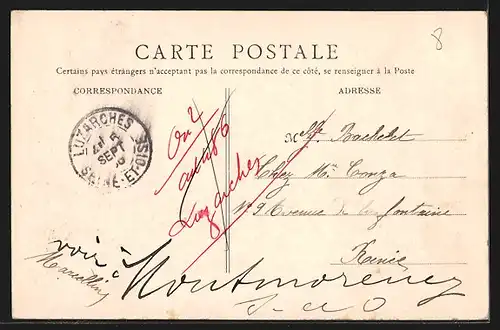 8
CARTE POSTALE
Certains pays étrangers n'acceptant pas la correspondance de ce côté, se renseigner à la Poste
CORRESPONDANCE
ADRESSE
LUZARCHES
SEPT
SEINE-ET-OISE
Luzarches
Bachelet
Chez Mr
N° 9 Avenue de la fontaine
voir à
Montmorency
S-&-O